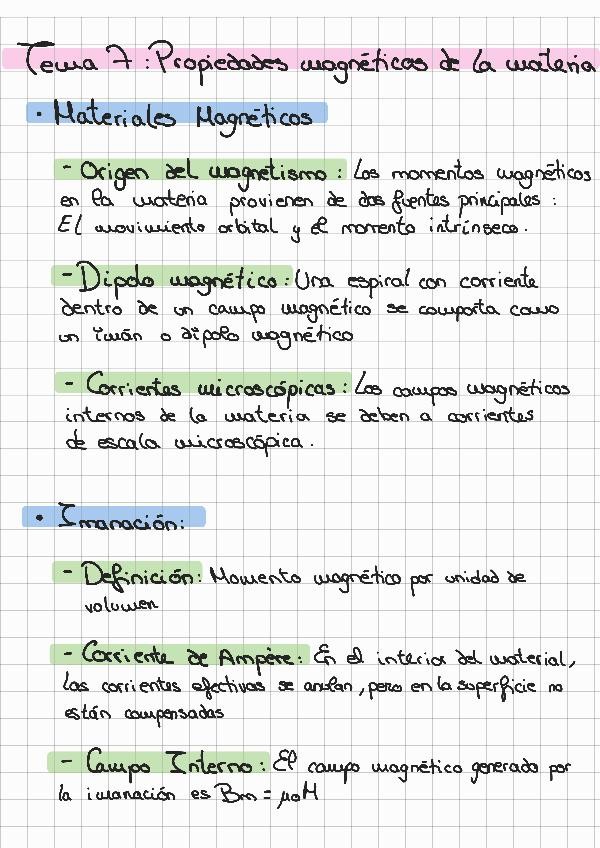 Tema 7: Propiedades magnéticas de la materia
• Materiales Magnéticos
- Origen del magnetismo: Los momentos magnéticos
en la materia provienen de dos fuentes principales:
El movimiento orbital y el momento intrínseco.
- Dipolo magnético: Una espiral con corriente
dentro de un campo magnético se comporta como
un imán o dipolo magnético
- Corrientes microscópicas: Los campos magnéticos
internos de la materia se deben a corrientes
de escala microscópica.
• Imanación:
- Definición: Momento magnético por unidad de
volumen
- Corriente de Ampère: En el interior del material,
las corrientes efectivas se anulan, pero en la superficie no
están compensadas
- Campo Interno: El campo magnético generado por
la imanación es Bm = μoM